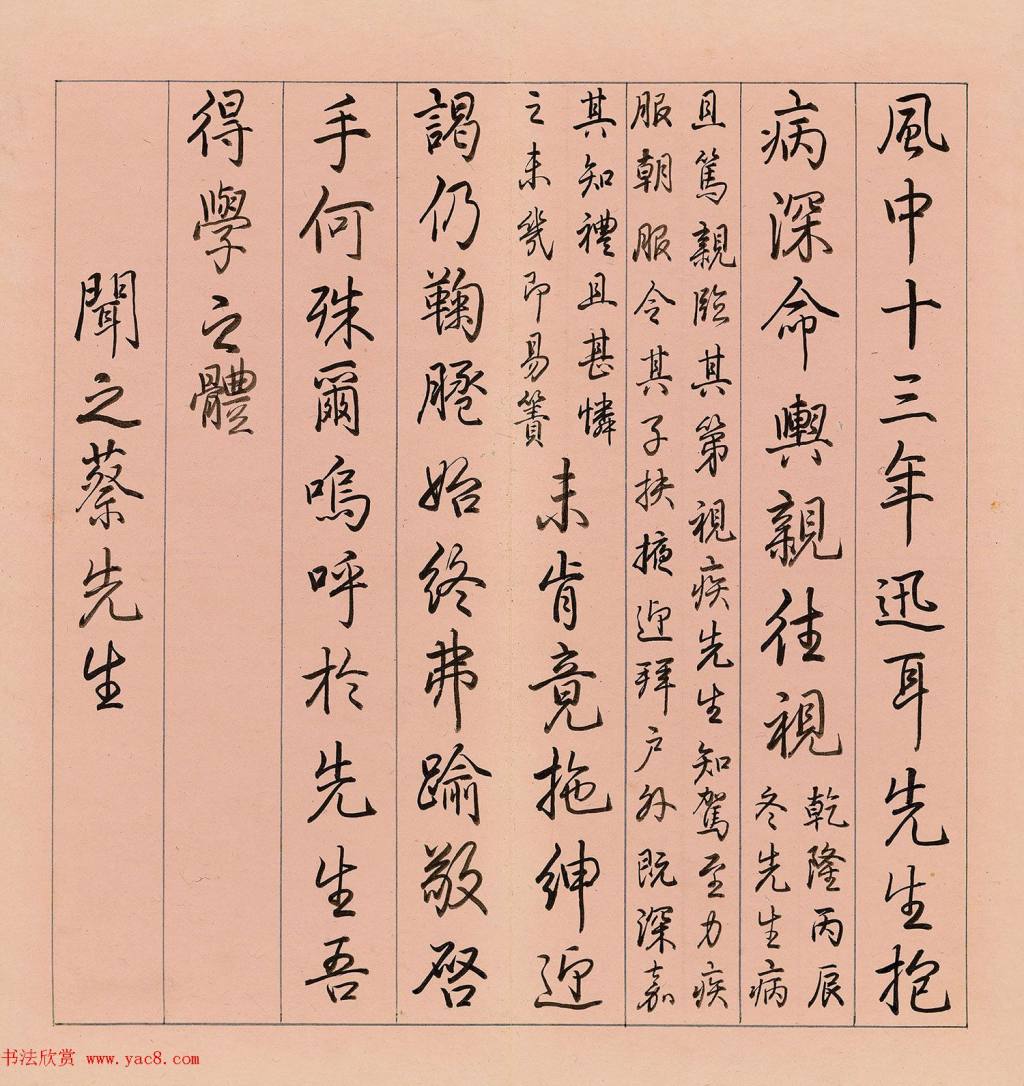 風中十三年迅耳先生抱
病深命輿親往視
乾隆丙辰
冬先生病
且篤親臨其第視疾先生知駕至力疾
服朝服令其子扶掖迎拜戶外既深嘉
其知禮且甚憐
之未幾即易簀
未肯竟拖紳迎
謁仍鞠𦜕始終弗踰敬啓
手何殊爾嗚呼於先生吾
得學之體
聞之蔡先生
书法欣赏 www.yac8.com